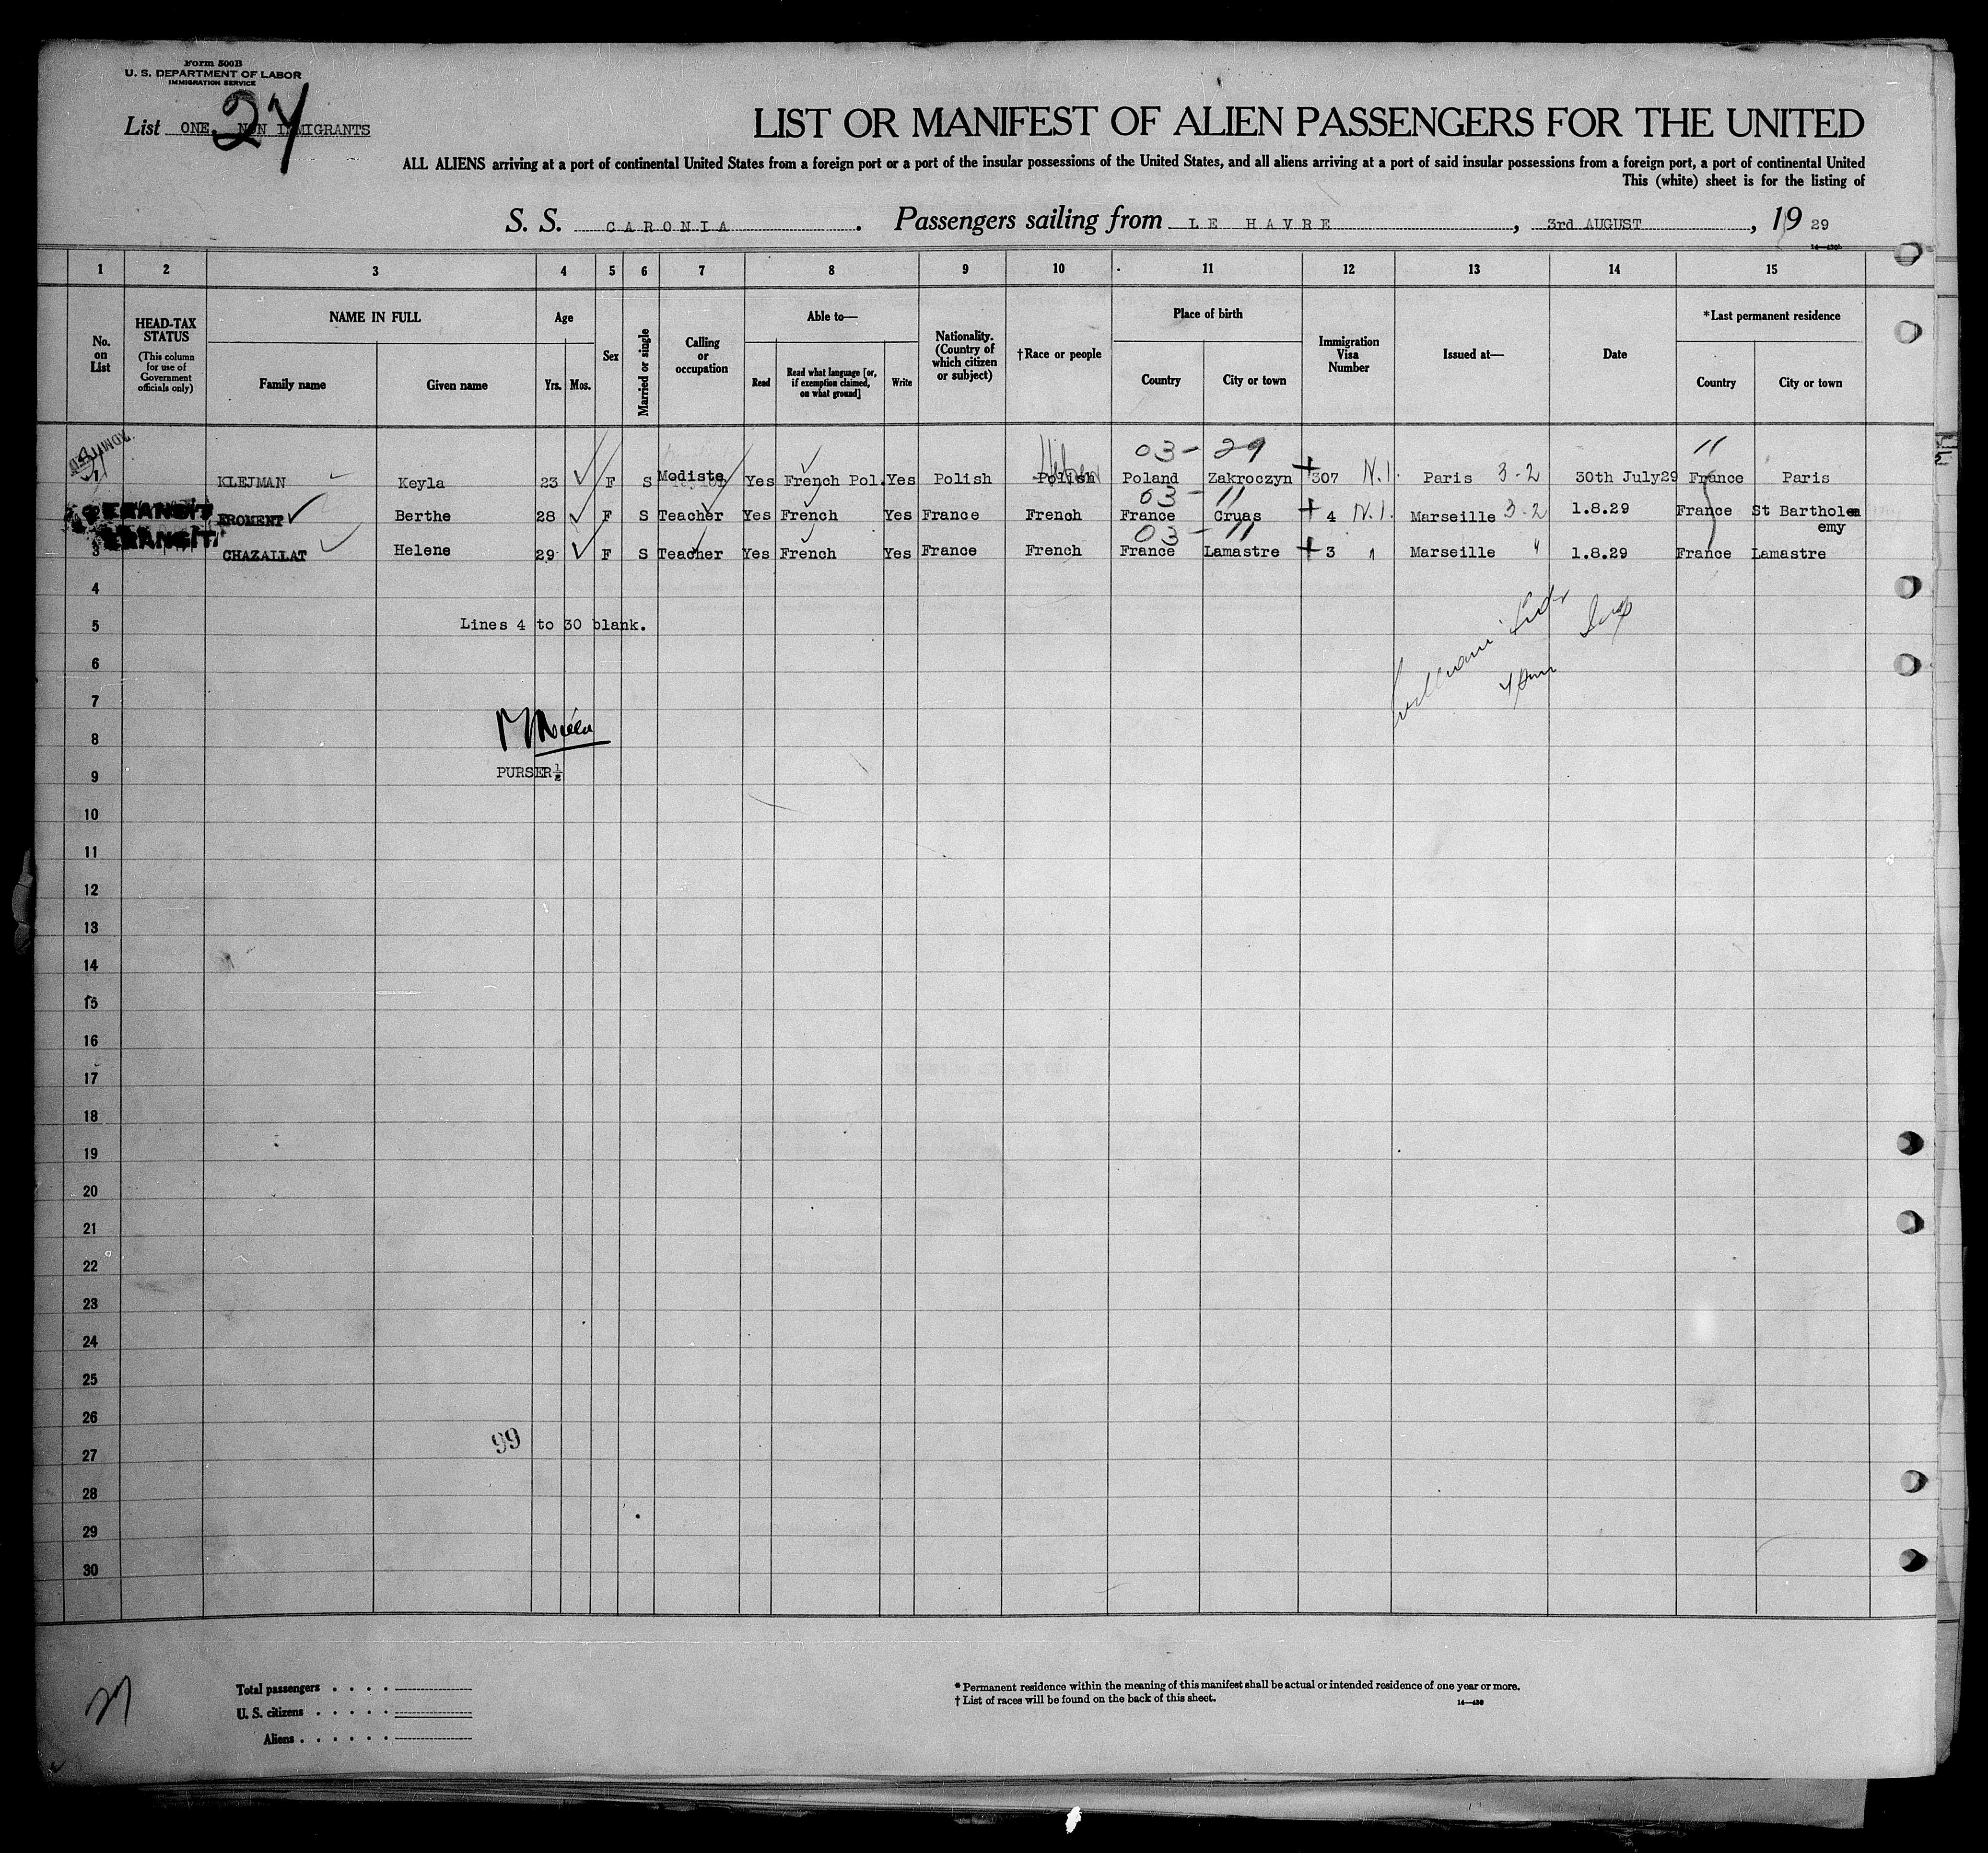 Form 500B
U. S. DEPARTMENT OF LABOR
IMMIGRATION SERVICE
List ONE. NON IMMIGRANTS
27
LIST OR MANIFEST OF ALIEN PASSENGERS FOR THE UNITED
ALL ALIENS arriving at a port of continental United States from a foreign port or a port of the insular possessions of the United States, and all aliens arriving at a port of said insular possessions from a foreign port, a port of continental United
This (white) sheet is for the listing of
S. S. CARONIA. Passengers sailing from LE HAVRE, 3rd AUGUST, 1929
1 2 3 4 5 6 7 8 9 10 11 12 13 14 15
No. on List
HEAD-TAX STATUS
(This column for use of Government officials only)
NAME IN FULL
Family name Given name
Age
Yrs. Mos.
Sex
Married or single
Calling or occupation
Able to—
Read
Read what language [or, if exemption claimed, on what ground]
Write
Nationality. (Country of which citizen or subject)
†Race or people
Place of birth
Country City or town
Immigration Visa Number
Issued at—
Date
*Last permanent residence
Country City or town
ADMITTED
03 - 29 11
1 KLEJMAN Keyla 23 F S Modiste Yes French Pol. Yes Polish Polish Hebrew Poland Zakroczyn 307 N.I. Paris 3-2 30th July29 France Paris
03 - 11
TRANSIT FROMENT Berthe 28 F S Teacher Yes French Yes France French France Cruas 4 N.I. Marseille 3-2 1.8.29 France St Bartholem
emy
03 - 11
3 TRANSIT. CHAZALLAT Helene 29 F S Teacher Yes French Yes France French France Lamastre 3 " Marseille " 1.8.29 France Lamastre
4
5 Lines 4 to 30 blank.
6
7
8
PURSER
9
10
11
12
13
14
15
16
17
18
19
20
21
22
23
24
25
26
99
27
28
29
30
27
Total passengers
U. S. citizens
Aliens
* Permanent residence within the meaning of this manifest shall be actual or intended residence of one year or more.
† List of races will be found on the back of this sheet.
14—430